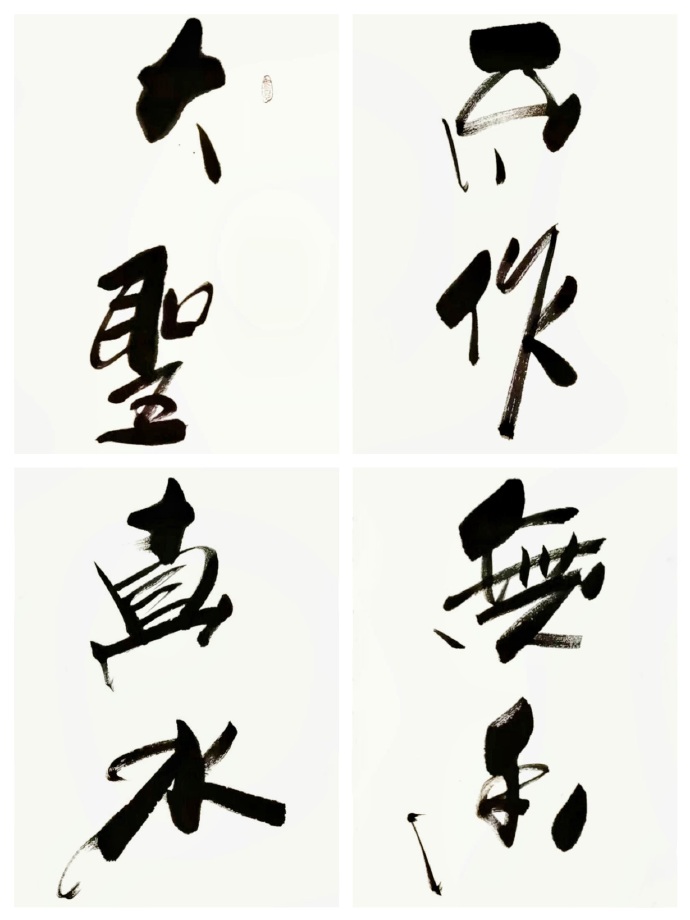 大聖
不作
真水
無香